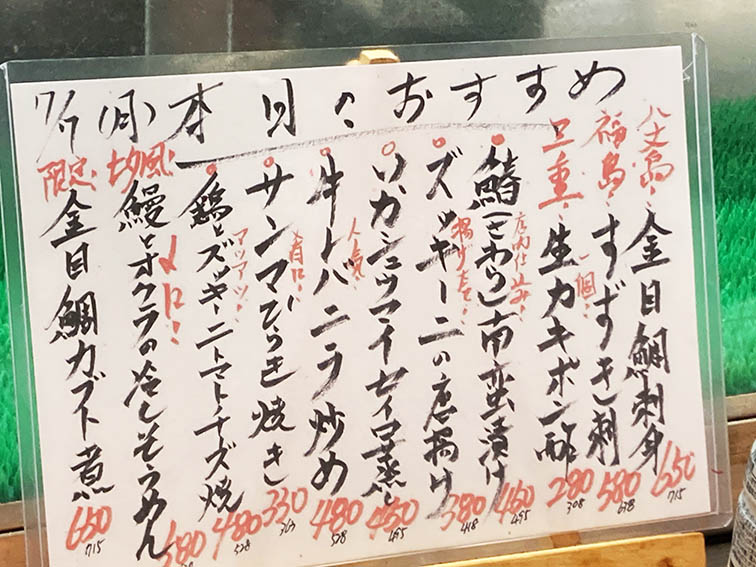 7/7(月)本日のおすすめ
八丈島・・金目鯛刺身 650 715
福島・・すずき刺 580 638
三重・・一個・・生カキポン酢 280 308
店内仕込み・・鰆(さわら)南蛮漬け 450 495
揚げたて・・ズッキーニの唐揚げ 380 418
ソフカシュウマイセイロ蒸し 450 495
人気・・牛トバニラ炒め 480 528
サンマひらき焼き 330 363
アツアツ・・鶏とズッキーニトマトチーズ焼 480 528
夕風・・鰻とオクラの冷しそうめん 580
限定・・金目鯛カブト煮 650 715